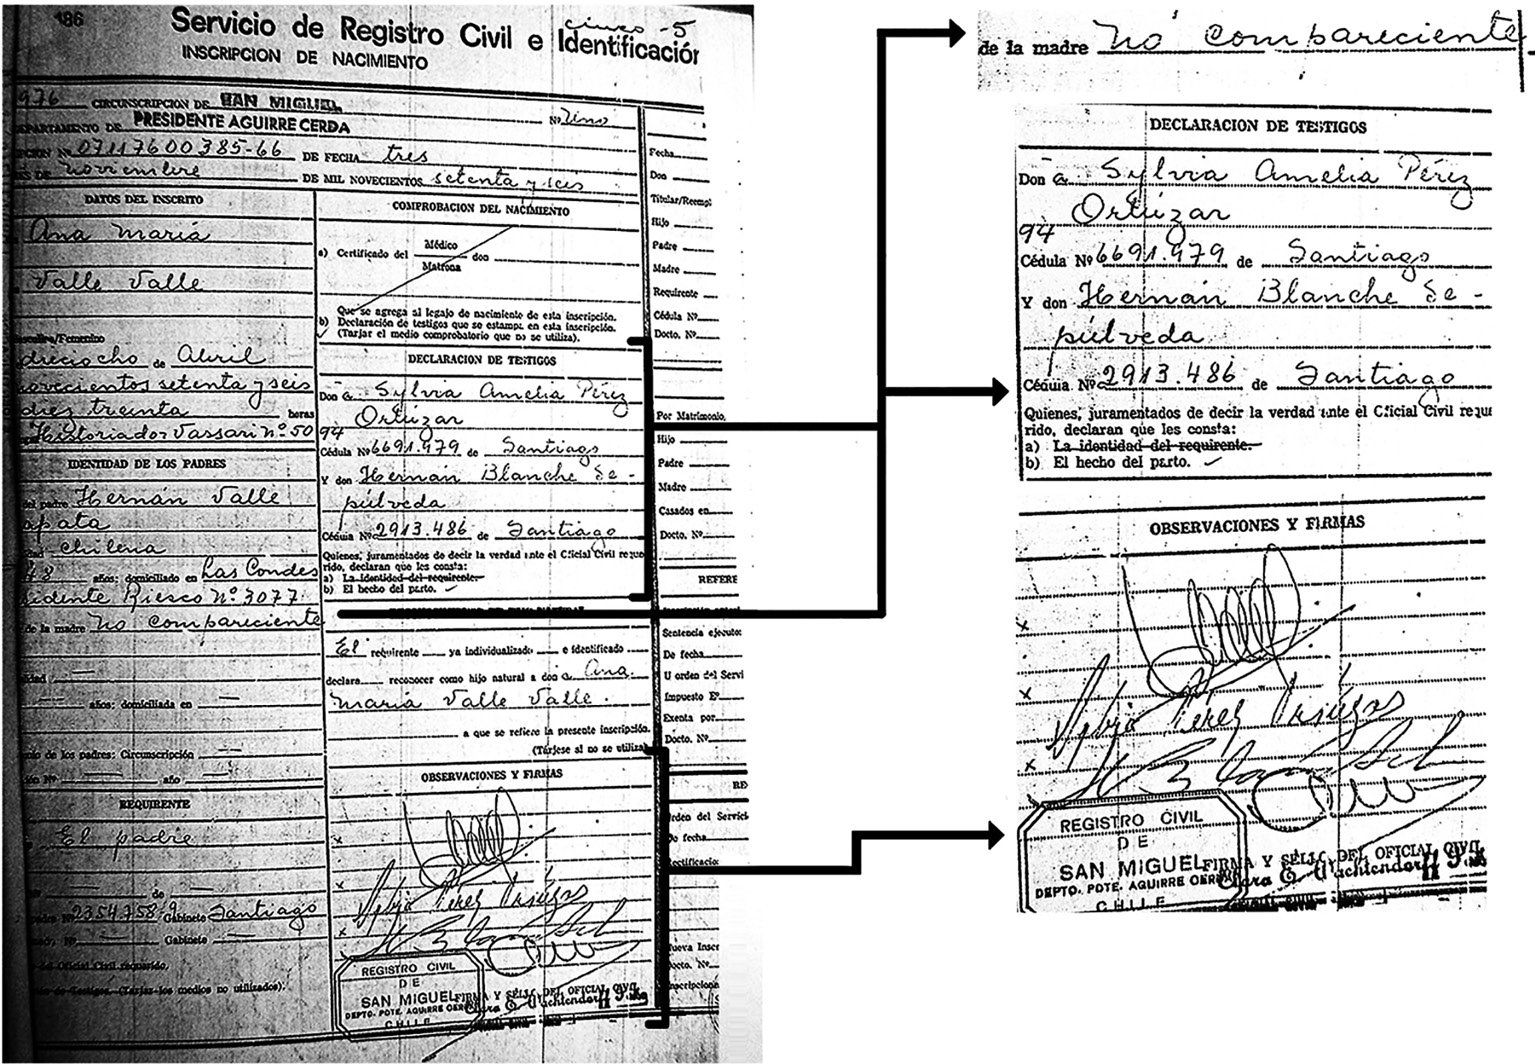 186
cinco -5
Servicio de Registro Civil e Identificación
INSCRIPCION DE NACIMIENTO
976 CIRCUNSCRIPCION DE SAN MIGUEL
Nº Uno
DEPARTAMENTO DE PRESIDENTE AGUIRRE CERDA
PCION Nº 07117600385-66 DE FECHA tres
ES DE Noviembre DE MIL NOVECIENTOS setenta y seis
DATOS DEL INSCRITO
Ana María
Valle Valle
Masculino/Femenino
dieciocho de Abril
novecientos setenta y seis
diez treinta horas
Historiador Vassari nº 50
IDENTIDAD DE LOS PADRES
del padre Hernán Valle
apata
dad chilena
48 años: domiciliado en Las Condes
sidente Riesco Nº 3077
de la madre No compareciente
idad —
— años: domiciliada en —
nio de los padres: Circunscripción —
ón Nº — año —
REQUIRENTE
El padre
Nº — de —
padre Nº 2354.758-9 Gabinete Santiago
Nº — Gabinete —
del Oficial Civil requerido.
de Testigos. (Tarjar los medios no utilizados).
COMPROBACION DEL NACIMIENTO
a) Certificado del Médico don
Matrona
Que se agrega al legajo de nacimiento de esta inscripción.
b) Declaración de testigos que se estampa en esta inscripción.
(Tarjar el medio comprobatorio que no se utiliza).
DECLARACION DE TESTIGOS
Don a. Sylvia Amelia Pérez
Ortúzar
94
Cédula Nº 6691.979 de Santiago
Y don Hernán Blanche Se-
púlveda
Cédula Nº 2913.486 de Santiago
Quienes, juramentados de decir la verdad ante el Oficial Civil reque
rido, declaran que les consta:
a) La identidad del requirente.
b) El hecho del parto. ✓
El requirente ya individualizado e identificado
declara reconocer como hijo natural a don a. Ana
María Valle Valle.
a que se refiere la presente inscripción.
(Tárjese si no se utiliza)
OBSERVACIONES Y FIRMAS
x
x
Sylvia Pérez Ortúzar
x
REGISTRO CIVIL
DE
SAN MIGUEL
DEPTO. PDTE. AGUIRRE CERDA
CHILE
FIRMA Y SELLO DEL OFICIAL CIVIL
Fecha
Don
Titular/Reempl
Hijo
Padre
Madre
Requirente
Cédula Nº
Docto. Nº
Por Matrimonio,
Hijo
Padre
Madre
Casados en
Docto. Nº
REFERE
Sentencia ejecuto:
De fecha
U orden del Servi
Impuesto Eº
Exenta por
Docto. Nº
RE
Orden del Servici
De fecha
Rectificacio:
Nueva Inscr
Docto. Nº
Inscripcion
de la madre No compareciente
DECLARACION DE TESTIGOS
Don a. Sylvia Amelia Pérez
Ortúzar
94
Cédula Nº 6691.979 de Santiago
Y don Hernán Blanche Se-
púlveda
Cédula Nº 2913.486 de Santiago
Quienes, juramentados de decir la verdad ante el Oficial Civil requi
rido, declaran que les consta:
a) La identidad del requirente.
b) El hecho del parto. ✓
OBSERVACIONES Y FIRMAS
x
x
Sylvia Pérez Ortúzar
x
REGISTRO CIVIL
DE
SAN MIGUEL
DEPTO. PDTE. AGUIRRE CERDA
CHILE
FIRMA Y SELLO DEL OFICIAL CIVIL